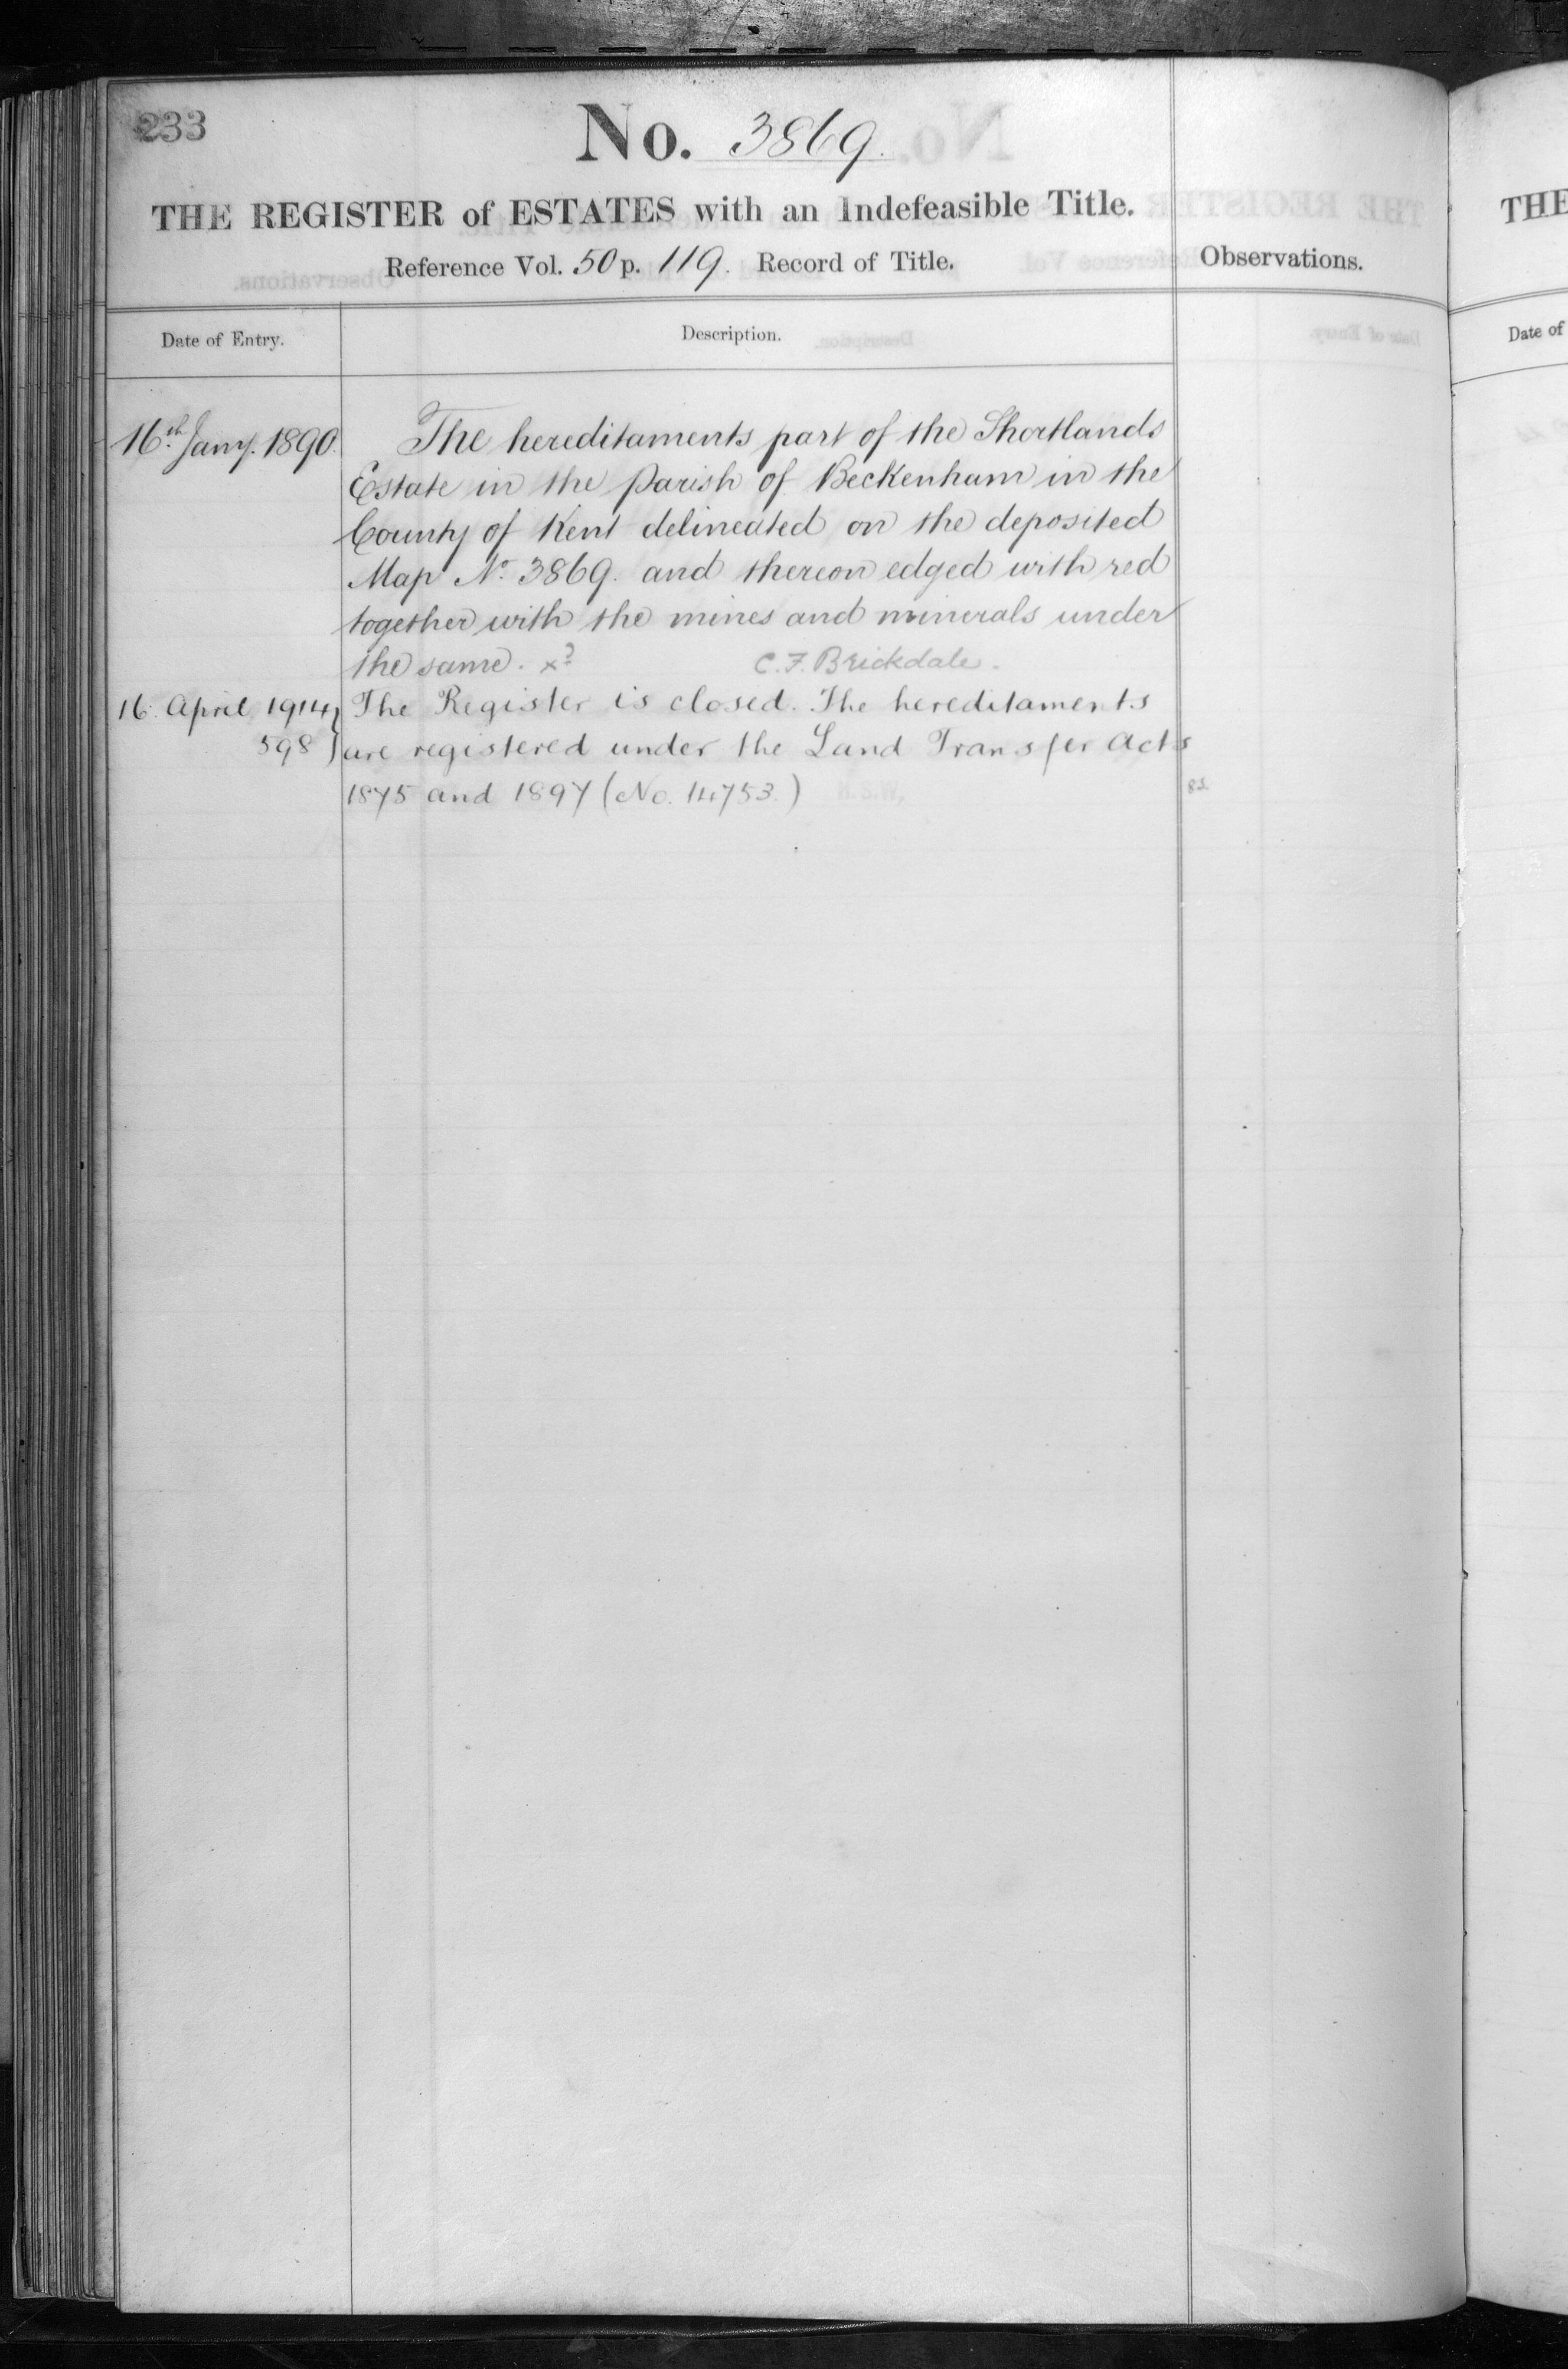 233
No. 3869.
THE REGISTER of ESTATES with an Indefeasible Title.
Reference Vol. 50 p. 119. Record of Title.
Observations.
Date of Entry.
Description.
16th Jany. 1890.
The hereditaments part of the Shortlands
Estate in the Parish of Beckenham in the
County of Kent delineated on the deposited
Map No. 3869. and thereon edged with red
together with the mines and minerals under
the same.
C. F. Brickdale.
16. April 1914
598
The Register is closed. The hereditaments
are registered under the Land Transfer Acts
1875 and 1897 (No. 14753.)
THE
Date of